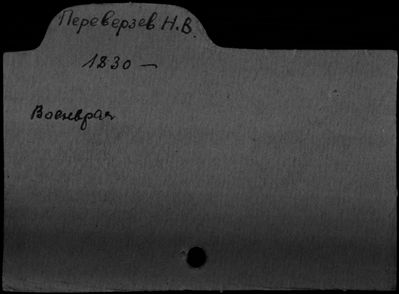 Переверзев Н.В.
1830 —
Военврач